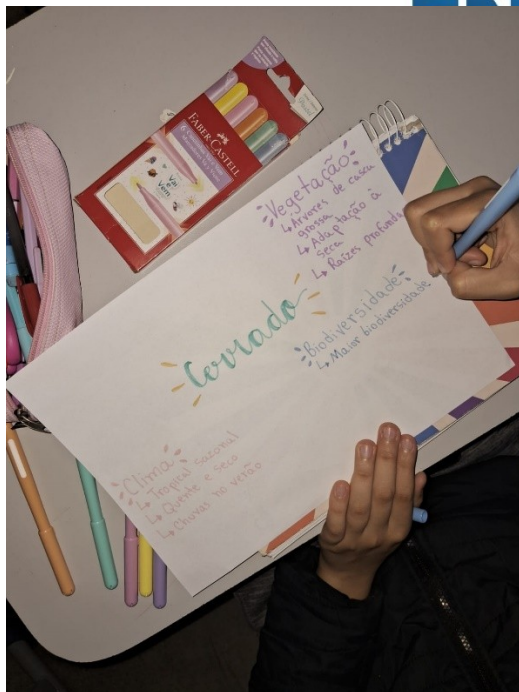 FABER-CASTELL
Vai e
Vem
Vegetação
↳ Árvores de casca
grossa
↳ Adaptação à
seca
↳ Raízes profunda
Cerrado
Biodiversidade
↳ Maior biodiversidade
Clima
↳ Tropical sazonal
↳ Quente e seco
↳ Chuvas no verão